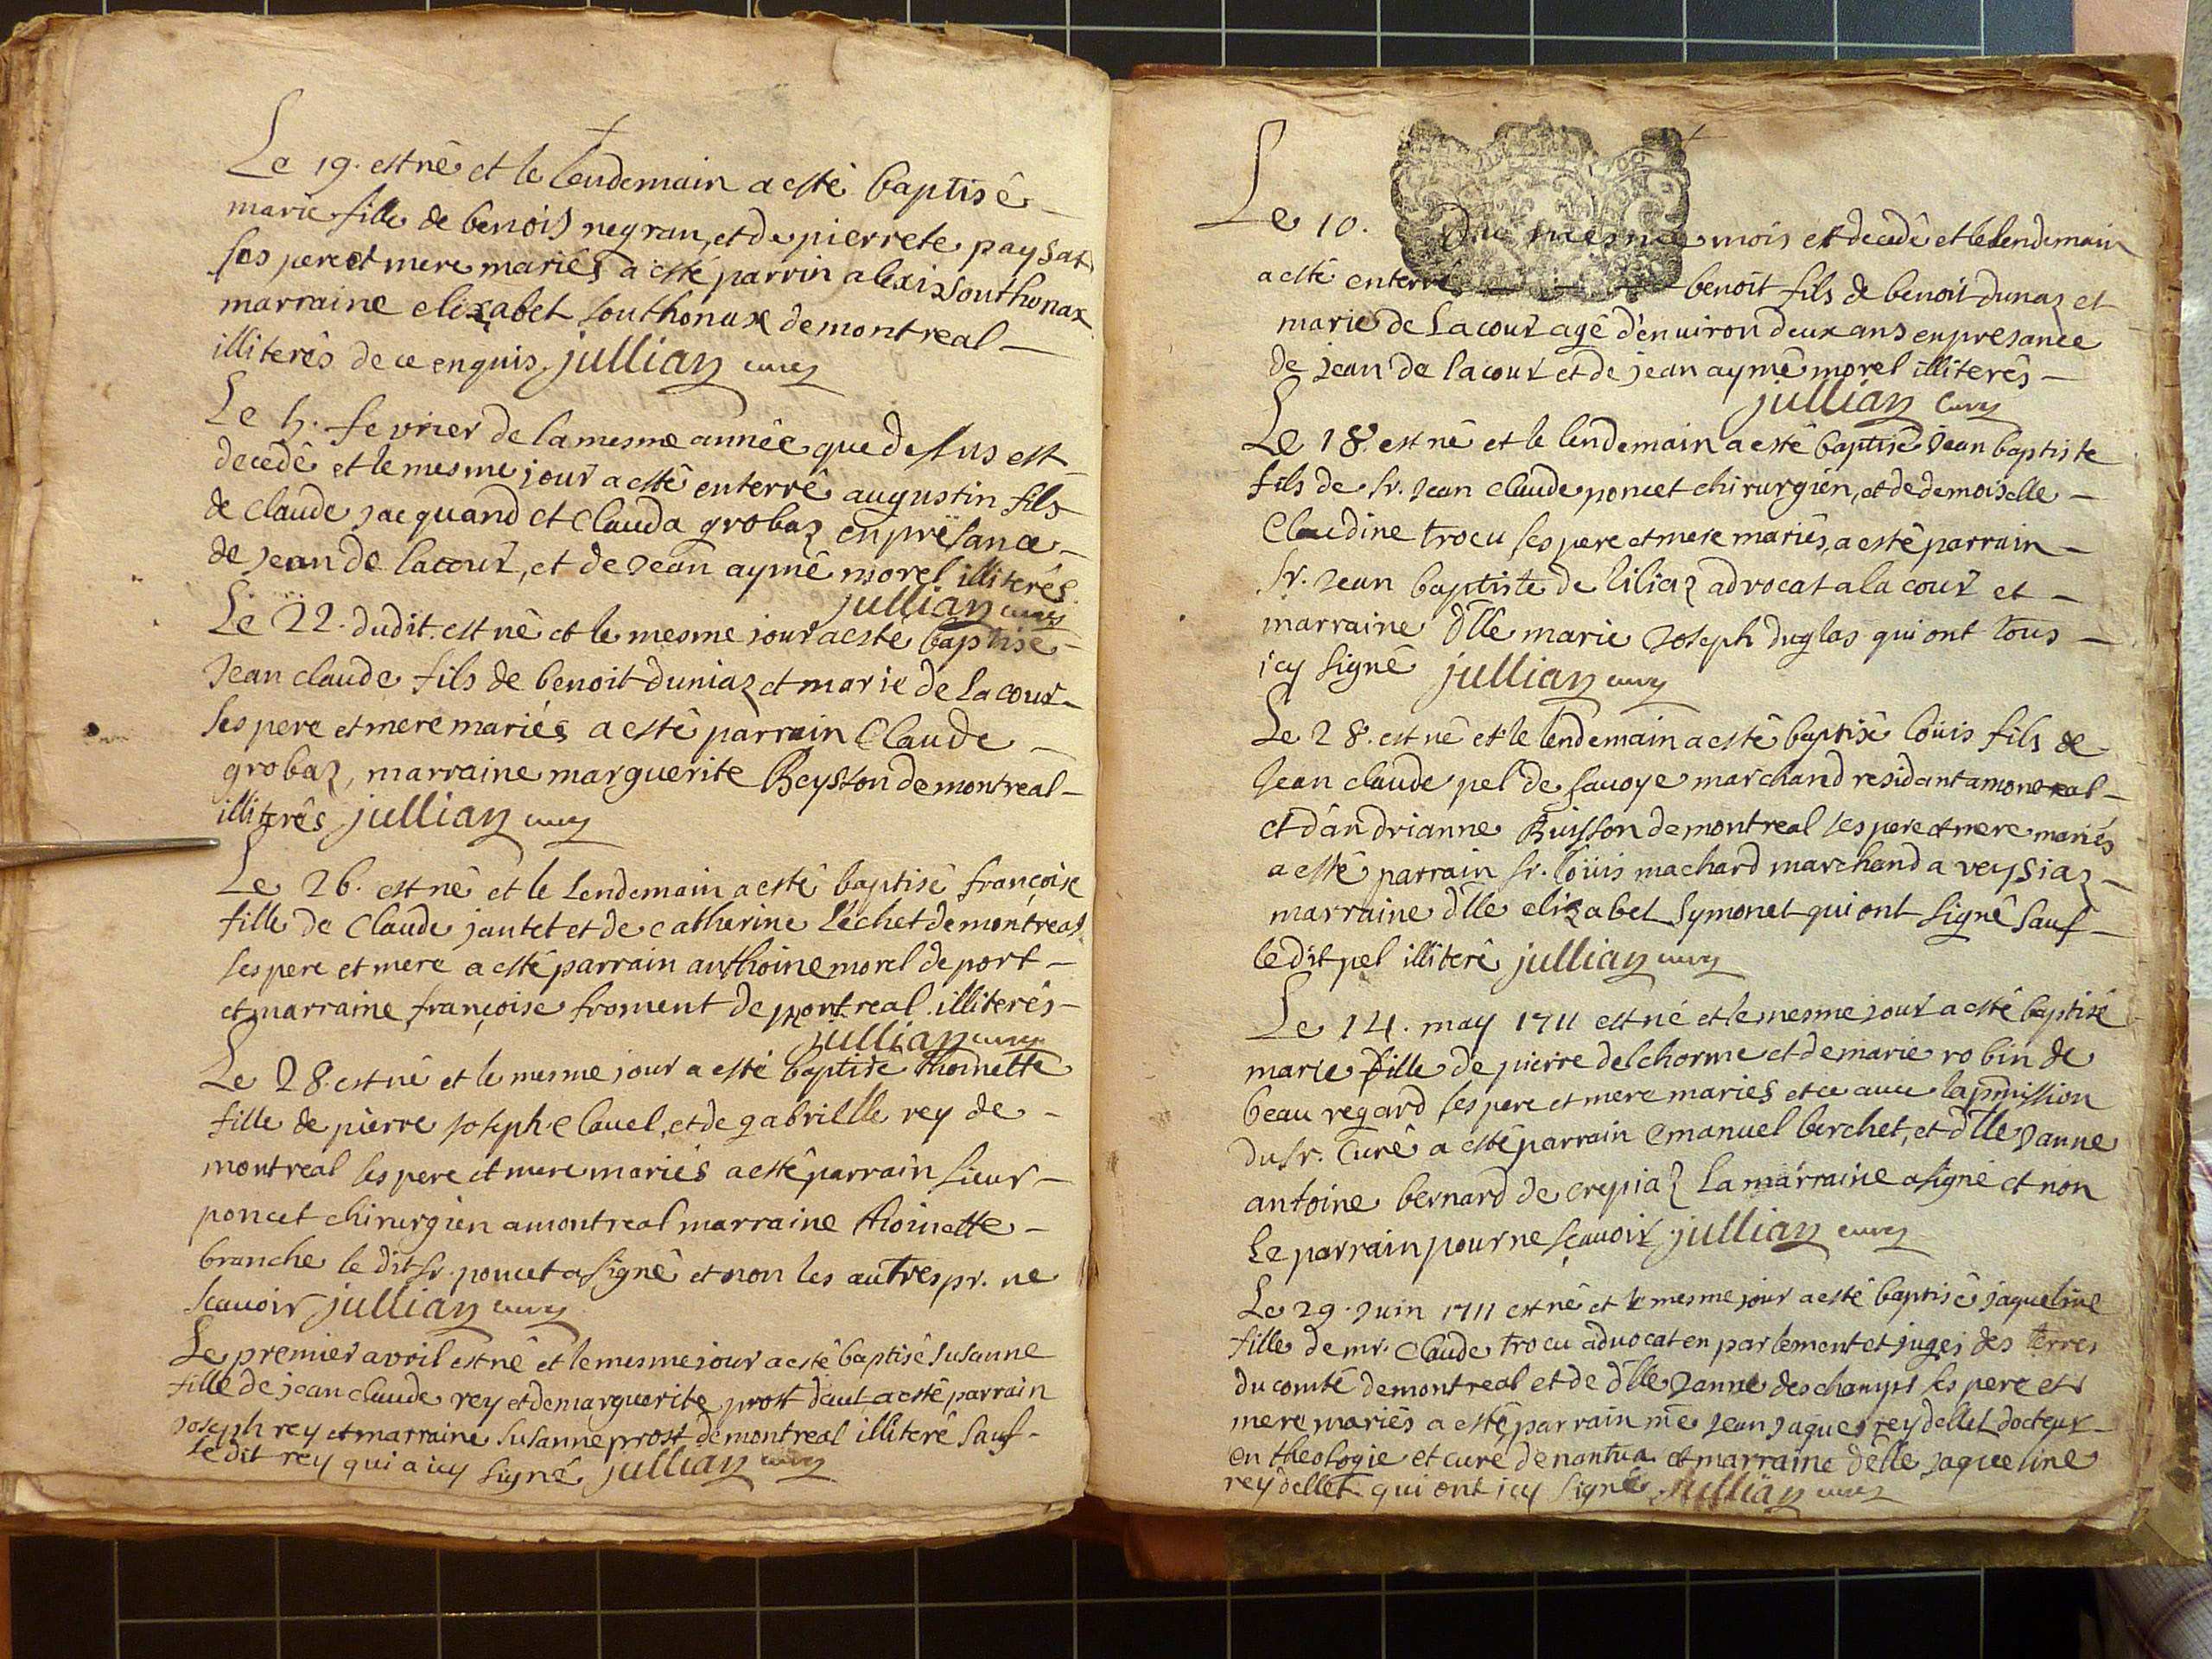 Le 19. est né et le lendemain a esté baptisé
marie fille de benois negran, et de pierrete paysat
ses pere et mere mariés a esté parrin alexis southonax
marraine elizabet southonax de montreal
illiterés de ce enquis. jullian curé
Le 5. fevrier de la mesme année que dessus est
decedé et le mesme jour a esté enterré augustin fils
de Claude jacquand et Clauda grobaz en presance
de Jean de lacour, et de Jean aymé morel illiterés
jullian curé
Le 22. dudit est né et le mesme jour a esté baptisé
Jean claude fils de benoit duniaz et marie de Lacour
ses pere et mere mariés a esté parrain Claude
grobaz, marraine marguerite Beysson de montreal
illiterés jullian curé
Le 26. est né et le Lendemain a esté baptisé françoise
fille de Claude jantet et de catherine Léchet de montreal
ses pere et mere a esté parrain anthoine morel de port
et marraine françoise froment de montreal illiterés
jullian curé
Le 28. est né et le mesme jour a esté baptisé thoinette
fille de pierre joseph Clavel, et de gabrielle rey de
montreal ses pere et mere mariés a esté parrain sieur
poncet chirurgien a montreal marraine thoinette
branche le dit sr. poncet a signé et non les autres pr. ne
scavoir jullian curé
Le premier avril est né et le mesme jour a esté baptisé susanne
fille de jean claude rey et de marguerite prost a esté parrain
joseph rey et marraine susanne prost de montreal illiteré sauf
Ledit rey qui a icy signé jullian curé
Le 10. du mesme mois est decedé et le lendemain
a esté enterré benoit fils de benoit dunaz et
marie de Lacour agé d'environ deux ans en presance
de jean de lacour et de jean aymé morel illiterés
jullian Curé
Le 18. est né et le lendemain a esté baptisé jean baptiste
fils de sr. jean Claude poncet chirurgien, et de demoiselle
Claudine trocu ses pere et mere mariés, a esté parrain
sr. Jean baptiste de liliaz advocat a la cour et
marraine dlle marie Joseph duglas qui ont tous
icy signé jullian curé
Le 28. est né et le lendemain a esté baptisé loüis fils de
Jean claude pel de savoye marchand residant a montreal
et dandrianne Buisson de montreal ses pere et mere mariés
a esté parrain sr. loüis machard marchand a veysiaz
marraine dlle elizabet symonet qui ont signé sauf
ledit pel illiteré jullian curé
Le 14. may 1711 est né et le mesme jour a esté baptisé
marie fille de pierre delchorme et de marie robin de
beau regard ses pere et mere mariés et ce avec la pmission
du sr. Curé a esté parrain emanuel berchet, et dlle janne
antoine bernard de crepiaz La marraine a signé et non
Le parrain pour ne sçavoir jullian curé
Le 29. Juin 1711 est né et le mesme jour a esté baptisé jaqueline
fille de mr. Claude trocu advocat en parlement et juge des terres
du comté de montreal et de dlle Janne deschamps ses pere et
mere mariés a esté parrain me Jean jaques reydellet docteur
en theologie et curé de nantua et marraine delle jaqueline
reydellet qui ont icy signé jullian curé